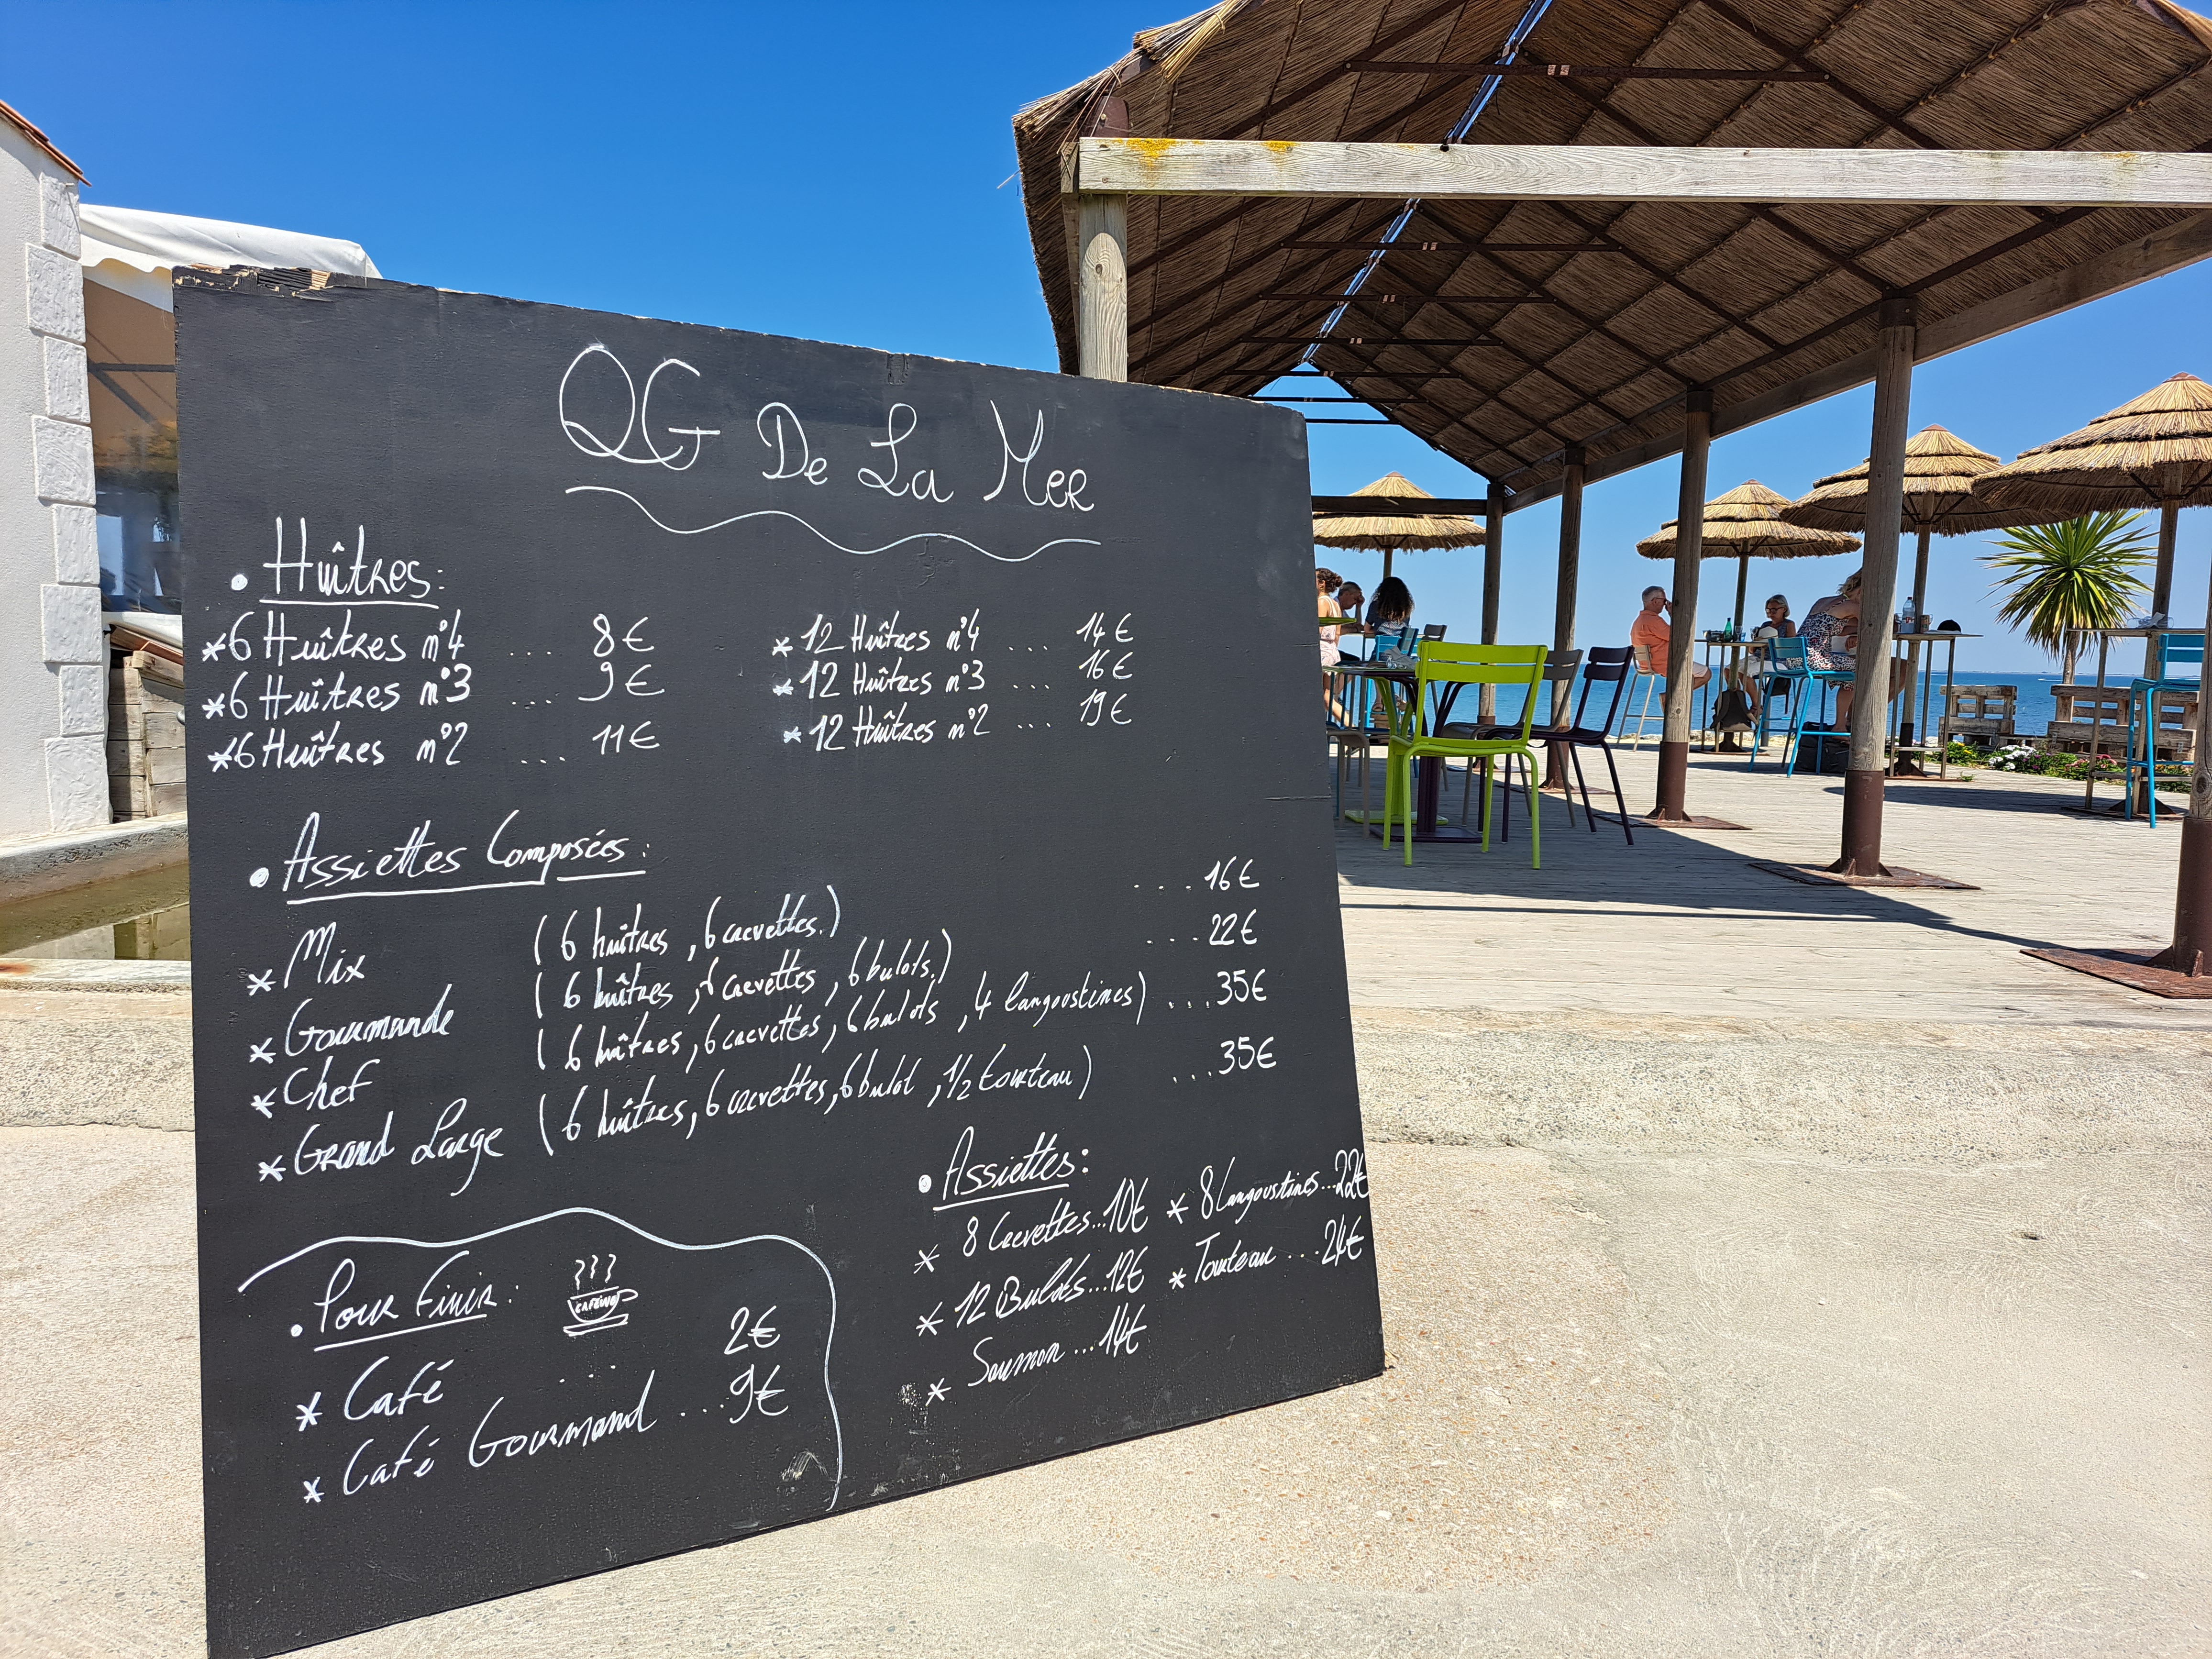 QG De La Mer
• Huîtres:
*6 Huîtres n°4 ... 8€
*6 Huîtres n°3 ... 9€
*6 Huîtres n°2 ... 11€
*12 Huîtres n°4 ... 14€
*12 Huîtres n°3 ... 16€
*12 Huîtres n°2 ... 19€
• Assiettes Composées:
* Mix (6 huîtres, 6 crevettes.) ....16€
* Gourmande (6 huîtres, 6 crevettes, 6 bulots.) ....22€
* Chef (6 huîtres, 6 crevettes, 6 bulots, 4 langoustines) ...35€
* Grand Large (6 huîtres, 6 crevettes, 6 bulot, 1/2 tourteau) ...35€
• Assiettes:
* 8 Crevettes...10€
* 12 Bulots...12€
* Saumon...14€
* 8 Langoustines...22€
* Tourteau ...24€
• Pour Finir:
CAFÉINO
* Café ... 2€
* Café Gourmand ...9€